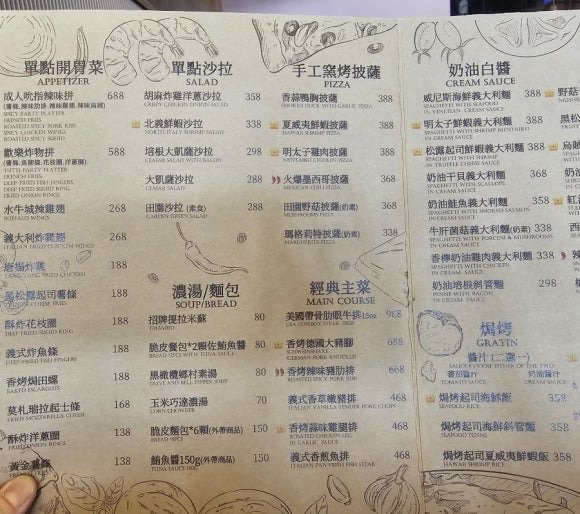 單點開胃菜
APPETIZER
成人吮指辣味拼 688
(薯條,辣味肋排,辣味雞翅,辣味烏圈)
SPICY PARTY PLATTER
FRENCH FRIES
ROASTED SPICY PORK RIBS
SPICY CHICKEN WINGS
ROASTED SPICY SQUID
歡樂炸物拼 588
(薯條,魚柳條,花枝圈,洋蔥圈)
PARTY PLATTER
FRENCH FRIES
DEEP-FRIED FISH FINGERS
DEEP-FRIED SQUID RING
FRIED ONION RINGS
水牛城辣雞翅 268
BUFFALO WINGS
義大利炸雞翅 268
ITALIAN FRIED CHICKEN WINGS
唐揚炸雞 188
FRIED CHICKEN
松露起司薯條 188
CHEESE FRIES
酥炸花枝圈 188
DEEP-FRIED SQUID RING
義式炸魚條 188
DEEP-FRIED FISH FINGERS
香烤焗田螺 188
BAKED ESCARGOTS
莫札瑞拉起士條 168
FRIED MOZZARELLA CHEESE
酥炸洋蔥圈 138
FRIED ONION RINGS
黃金薯條 138
單點沙拉
SALAD
胡麻炸雞洋蔥沙拉 358
CRISPY CHICKEN ONION SALAD
北義鮮蝦沙拉 338
NORTH ITALY SHRIMP SALAD
培根大凱薩沙拉 298
CEASAR SALAD WITH BACON
大凱薩沙拉 258
CEASAR SALAD
田園沙拉 (素食) 288
GARDEN GREEN SALAD
濃湯/麵包
SOUP/BREAD
招牌提拉米蘇 80
TIRAMISU
脆皮餐包*2顆佐鮪魚醬 80
BREAD*2PCS WITH TUNA SAUCE
黑橄欖鄉村素湯 80
OLIVE AND BELL PEPPER SOUP
玉米巧達濃湯 70
CORN CHOWDER
脆皮麵包*6顆(外帶商品) 150
BREAD *6PCS
鮪魚醬150g(外帶商品) 150
TUNA SAUCE 150G
手工窯烤披薩
PIZZA
香蒜鴨胸披薩 388
SMOKED DUCK WITH GARLIC PIZZA
夏威夷鮮蝦披薩 388
HAWAII SHRIMP PIZZA
明太子雞肉披薩 388
MENTAIKO CHICKEN PIZZA
火爆墨西哥披薩 368
MEXICAN CHILI PIZZA
田園野菇披薩(奶素) 368
MUSHROOMS PIZZA
瑪格莉特披薩(奶素) 338
MARGHERITE PIZZA
經典主菜
MAIN COURSE
美國帶骨肋眼牛排15oz 988
USA COWBOY STEAK 15OZ
香烤德國大豬腳 688
SCHWEINSHAXE
GERMAN PORK KNUCKLE
香烤辣味豬肋排 668
ROASTED SPICY PORK RIBS
義式香草嫩豬排 468
ITALIAN VANILLA TENDER PORK CHOPS
香烤蒜味雞腿排 468
ROASTED CHICKEN LEG
IN GARLIC SAUCE
義式香煎魚排 468
ITALIAN PAN FRIED FISH STEAK
奶油白醬
CREAM SAUCE
威尼斯海鮮義大利麵 388
SPAGHETTI WITH SEAFOOD
IN VENETIAN CREAM SAUCE
明太子鮮蝦義大利麵 388
SPAGHETTI WITH SHRIMP MENTAIKO
IN CREAM SAUCE
松露起司鮮蝦義大利麵 388
SPAGHETTI WITH SHRIMP
IN TRUFFLE CHEESE SAUCE
奶油干貝義大利麵 368
SPAGHETTI WITH SCALLOPS
IN CREAM SAUCE
奶油鮭魚義大利麵 358
SPAGHETTI WITH SMOKED SALMON
IN CREAM SAUCE
牛肝菌菇義大利麵(奶素) 338
SPAGHETTI WITH PORCINI & MUSHROOMS
IN CREAM SAUCE
香檸奶油雞肉義大利麵 338
SPAGHETTI WITH CHICKEN
IN CREAM SAUCE
奶油培根斜管麵 298
PENNE WITH BACON
IN CREAM SAUCE
焗烤
GRATIN
醬汁(二選一)
蕃茄醬汁 奶油醬汁
TOMATO SAUCE CREAM SAUCE
焗烤起司海鮮飯 358
SEAFOOD RICE
焗烤起司海鮮斜管麵 358
SEAFOOD PENNE
焗烤起司夏威夷鮮蝦飯 358
HAWAII SHRIMP RICE
野菇